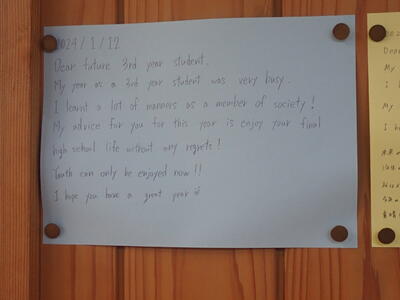 2024/1/12
Dear future 3rd year student.
My year as a 3rd year student was very busy.
I learnt a lot of manners as a member of society!
My advice for you for this year is enjoy your final
high school life without any regrets!
Youth can only be enjoyed now!!
I hope you have a great year
Dear
My
I
My
I h